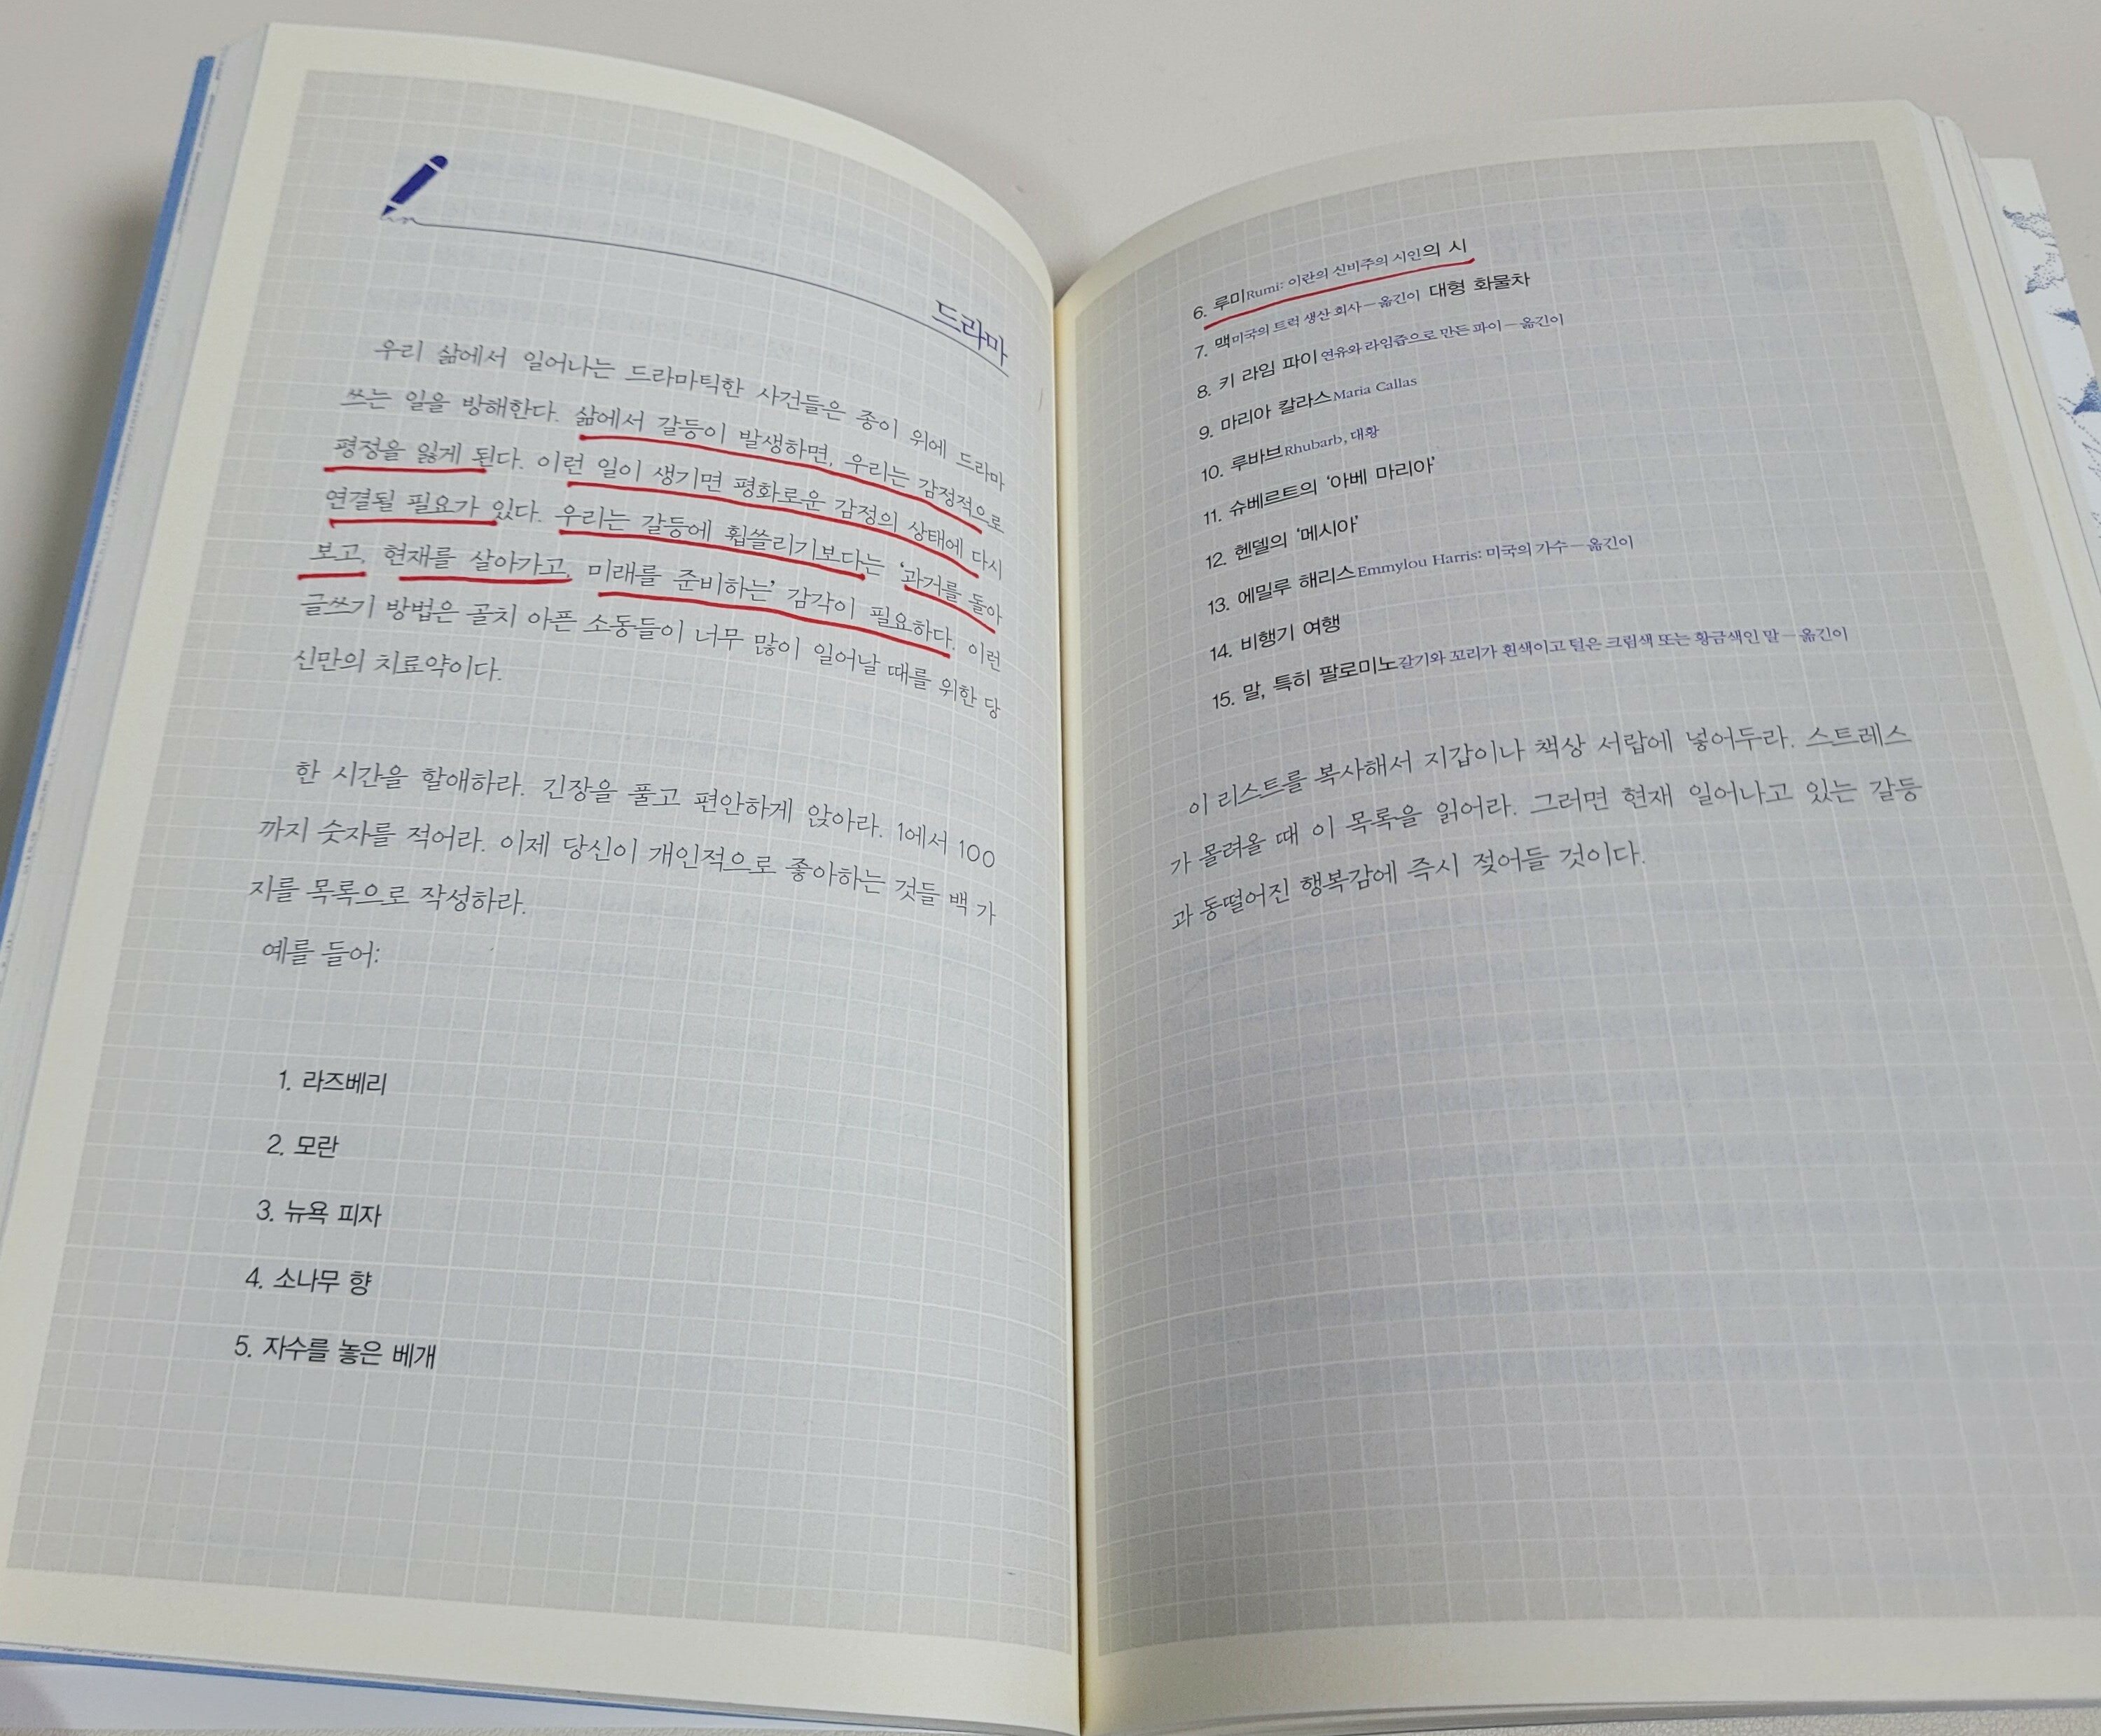 드라마
우리 삶에서 일어나는 드라마틱한 사건들은 종이 위에 드라마
쓰는 일을 방해한다. 삶에서 갈등이 발생하면, 우리는 감정적으로
평정을 잃게 된다. 이런 일이 생기면 평화로운 감정의 상태에 다시
연결될 필요가 있다. 우리는 갈등에 휩쓸리기보다는 ‘과거를 돌아
보고, 현재를 살아가고, 미래를 준비하는’ 감각이 필요하다. 이런
글쓰기 방법은 골치 아픈 소동들이 너무 많이 일어날 때를 위한 당
신만의 치료약이다.
한 시간을 할애하라. 긴장을 풀고 편안하게 앉아라. 1에서 100
까지 숫자를 적어라. 이제 당신이 개인적으로 좋아하는 것들 백 가
지를 목록으로 작성하라.
예를 들어:
1. 라즈베리
2. 모란
3. 뉴욕 피자
4. 소나무 향
5. 자수를 놓은 베개
6. 루미Rumi: 이란의 신비주의 시인의 시
7. 맥미국의 트럭 생산 회사－옮긴이 대형 화물차
8. 키 라임 파이연유와 라임즙으로 만든 파이－옮긴이
9. 마리아 칼라스Maria Callas
10. 루바브Rhubarb, 대황
11. 슈베르트의 ‘아베 마리아’
12. 헨델의 ‘메시아’
13. 에밀루 해리스Emmylou Harris: 미국의 가수－옮긴이
14. 비행기 여행
15. 말, 특히 팔로미노갈기와 꼬리가 흰색이고 털은 크림색 또는 황금색인 말－옮긴이
이 리스트를 복사해서 지갑이나 책상 서랍에 넣어두라. 스트레스
가 몰려올 때 이 목록을 읽어라. 그러면 현재 일어나고 있는 갈등
과 동떨어진 행복감에 즉시 젖어들 것이다.